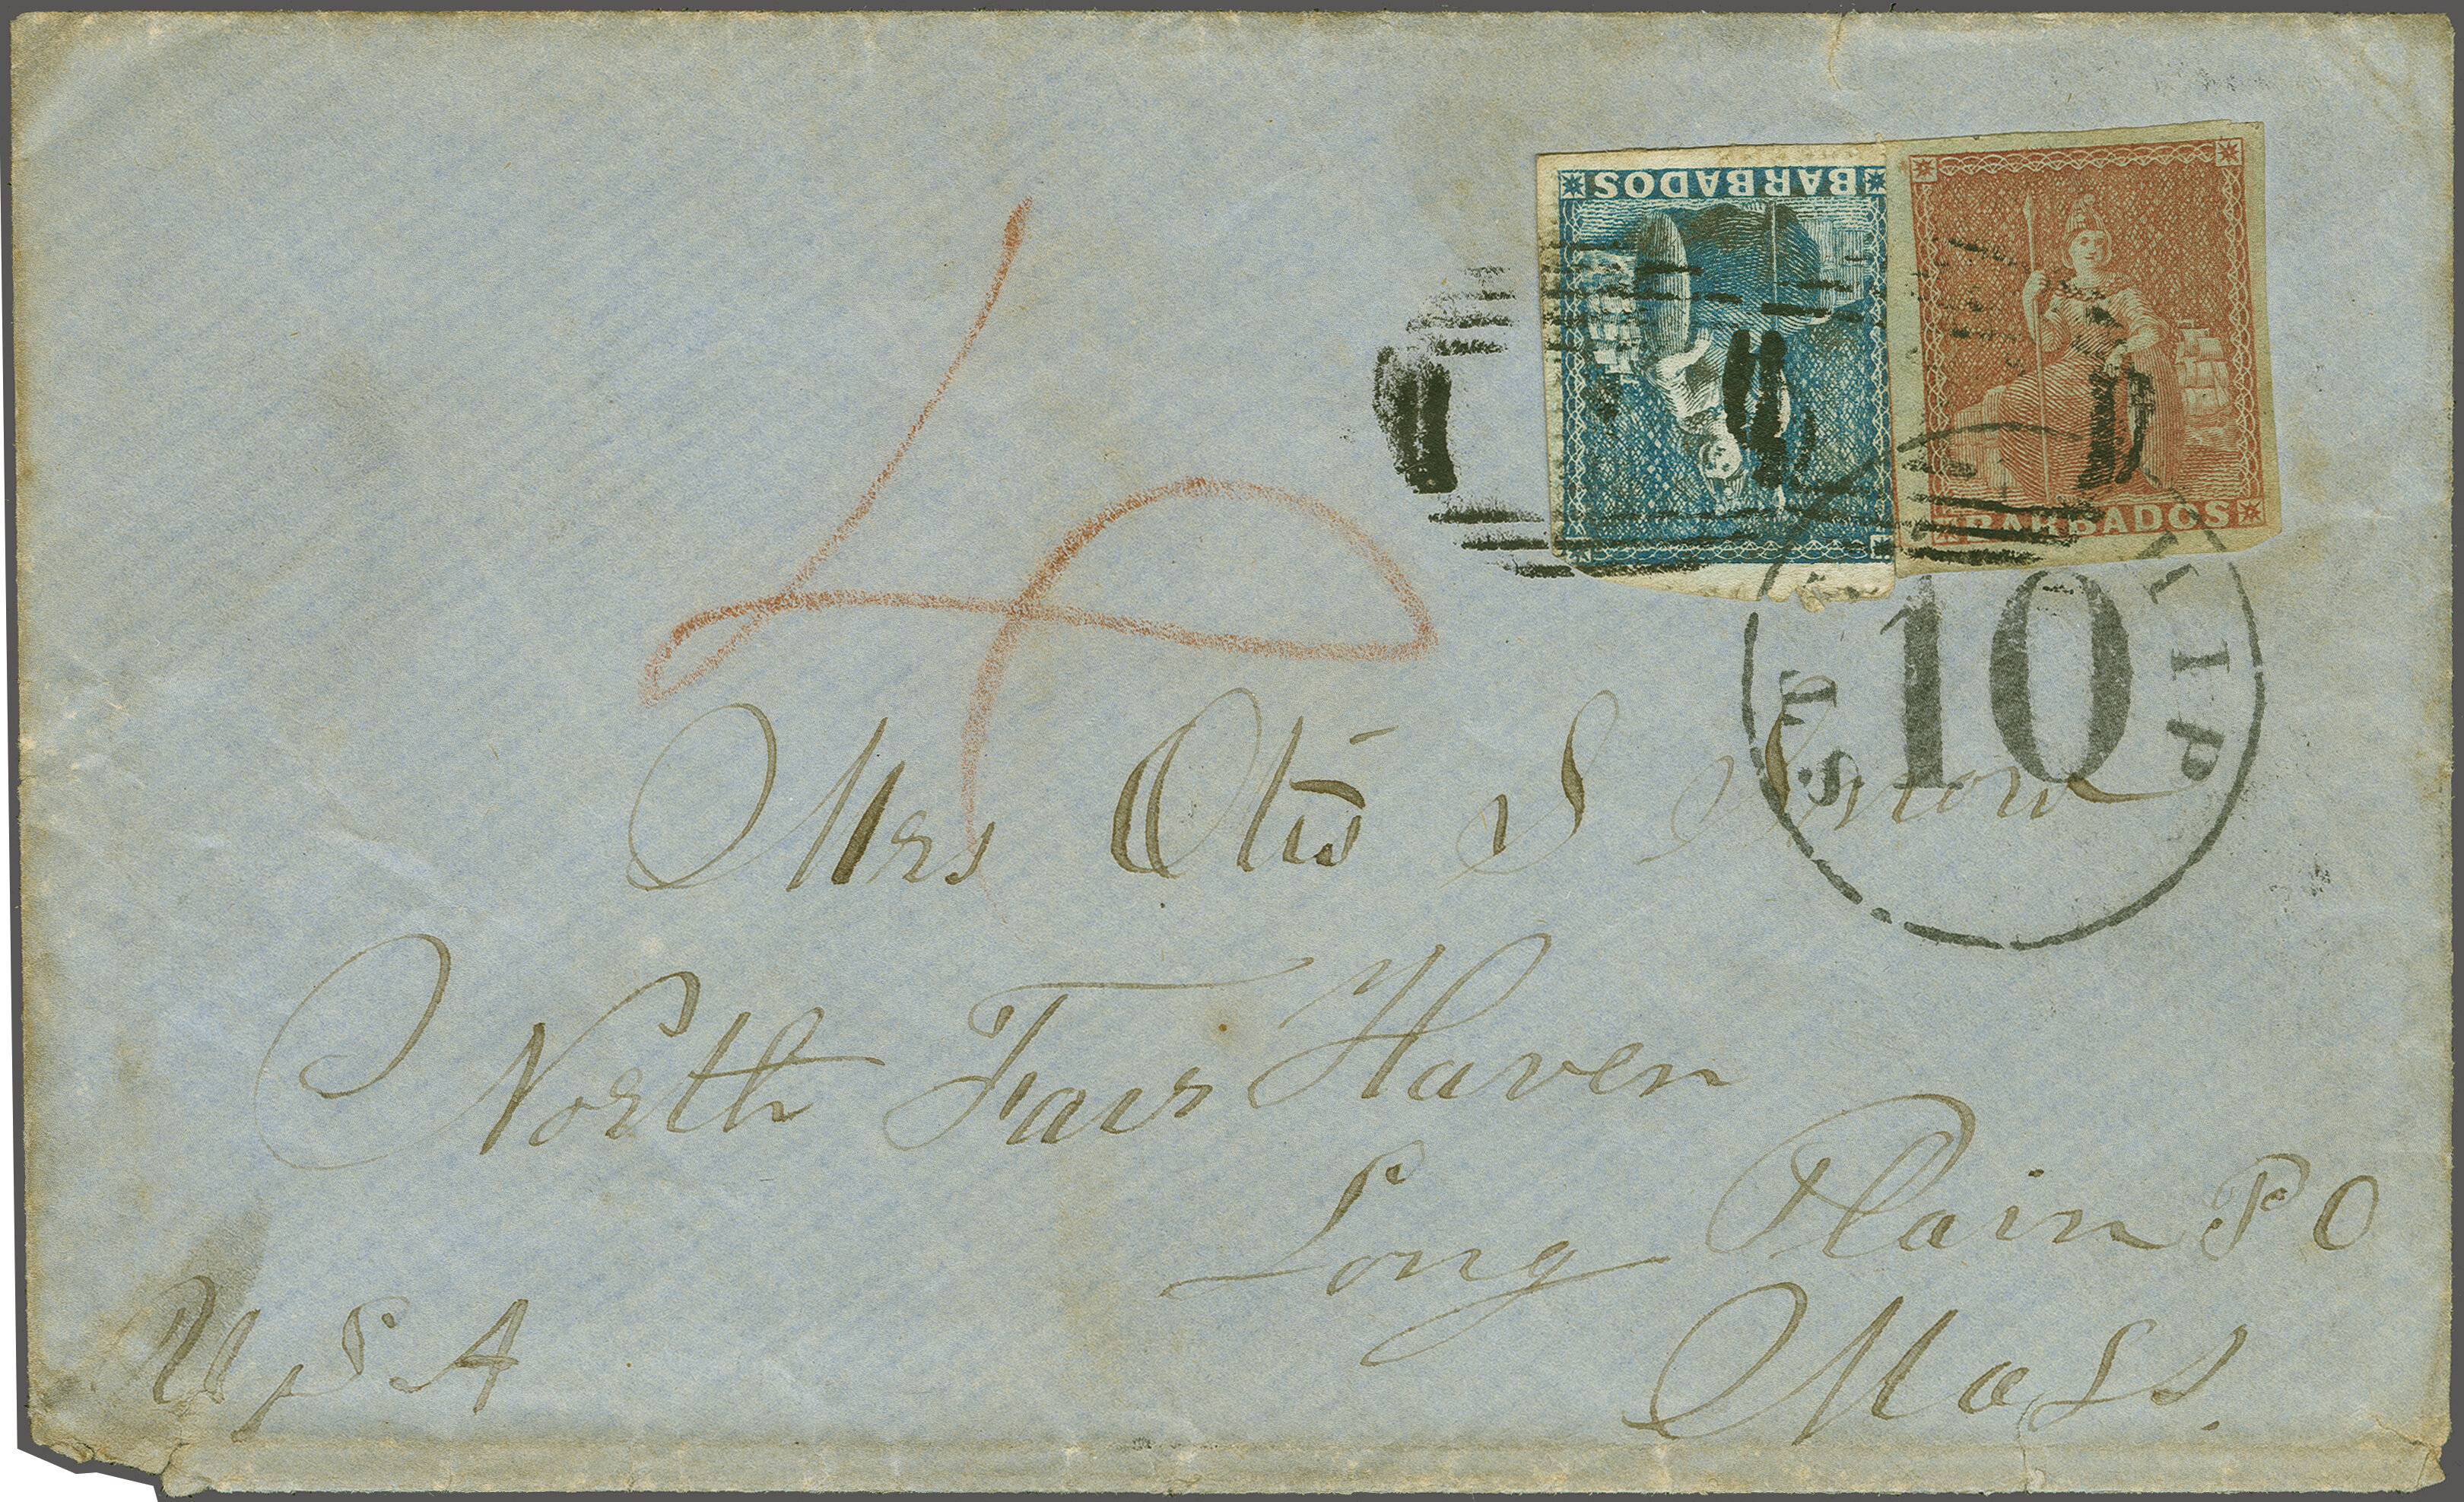 BARBADOS
BARBADOS
1
STEAMSHIP
10
4
Mrs Otis S Snow
North Fair Haven
Long Plain P O
Mass.
U S A